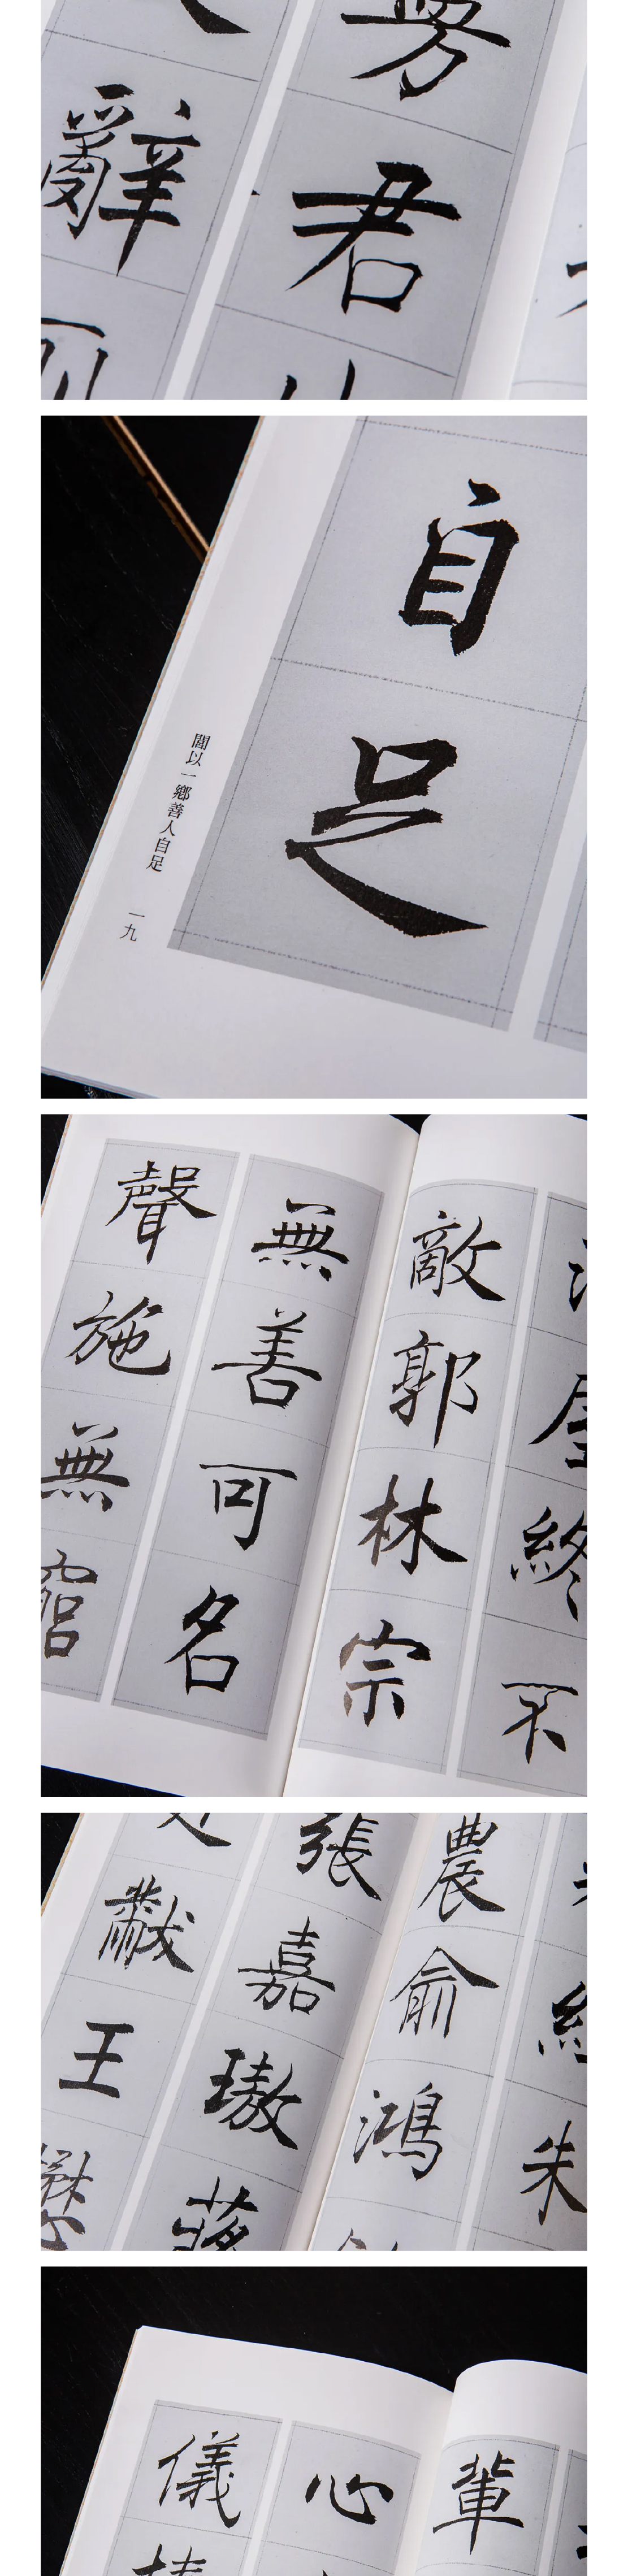 君
辭
自足
閭以一鄉善人自足
一九
終不
敵郭林宗
無善可名
聲施無窘
朱
農俞鴻
張嘉璈蔣
黻王懋
輩
心
儀